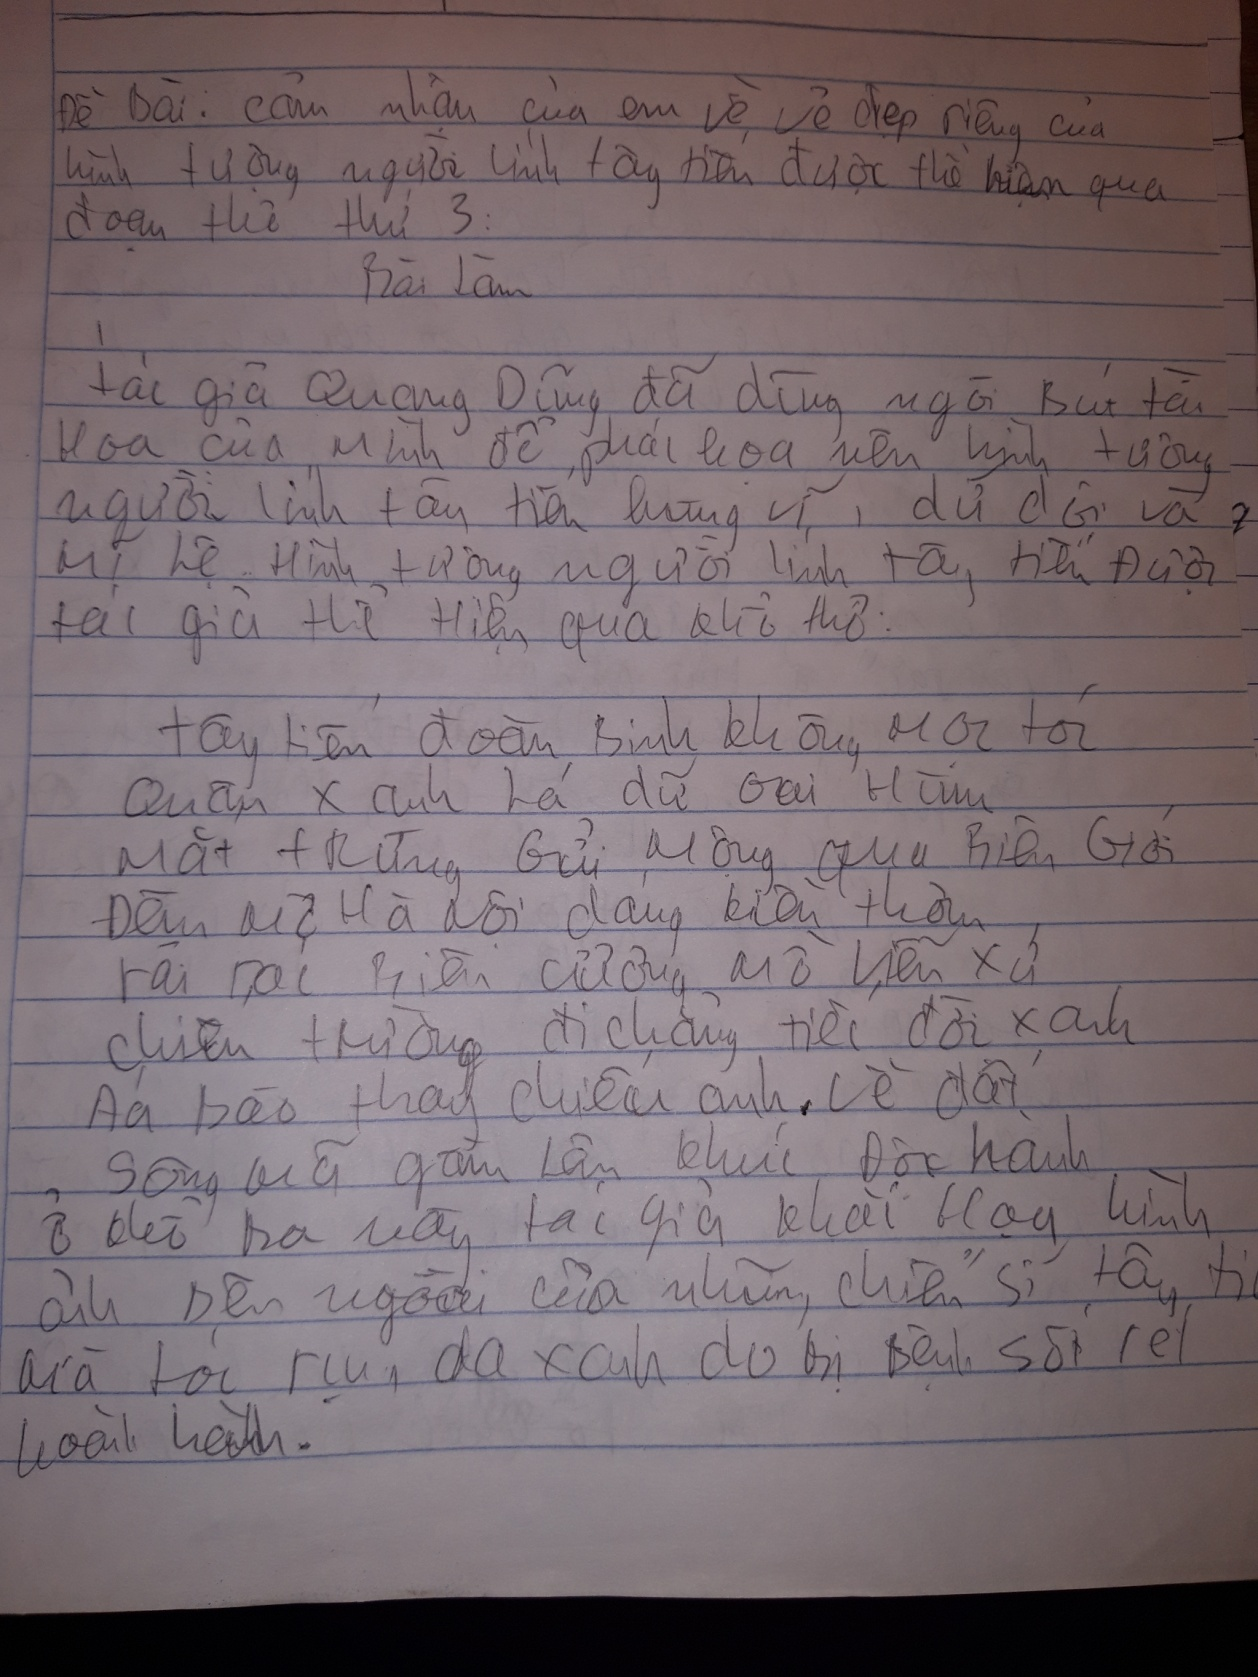 Đề bài: cảm nhận của em về vẻ đẹp riêng của
hình tượng người lính tây tiến được thể hiện qua
đoạn thơ thứ 3:
Bài Làm
tác giả Quang Dũng đã dùng ngòi Bút tài
Hoa của mình để phác hoạ nên hình tượng
người lính tây tiến hùng vĩ, dữ dội và
Mị lệ. Hình tượng người lính tây tiến Được
tác giả thể Hiện qua khổ thơ:
tây tiến đoàn Binh không Mọc tóc
Quân xanh Lá dữ oai Hùm
Mắt trừng Gửi Mộng qua Biên Giới
Đêm Mơ Hà Nội dáng kiều thơm
rải rác Biên cương Mồ Viễn xứ
chiến trường đi chẳng tiếc đời xanh
Aó bào thay chiếu anh về đất
Sông Mã gầm Lên khúc Độc hành
ở khổ ba này tác giả khắc Hoạ hình
ảnh bên người của những chiến sĩ tây
Mà tóc rụng, da xanh do bị bệnh sốt rét
hoành hành.